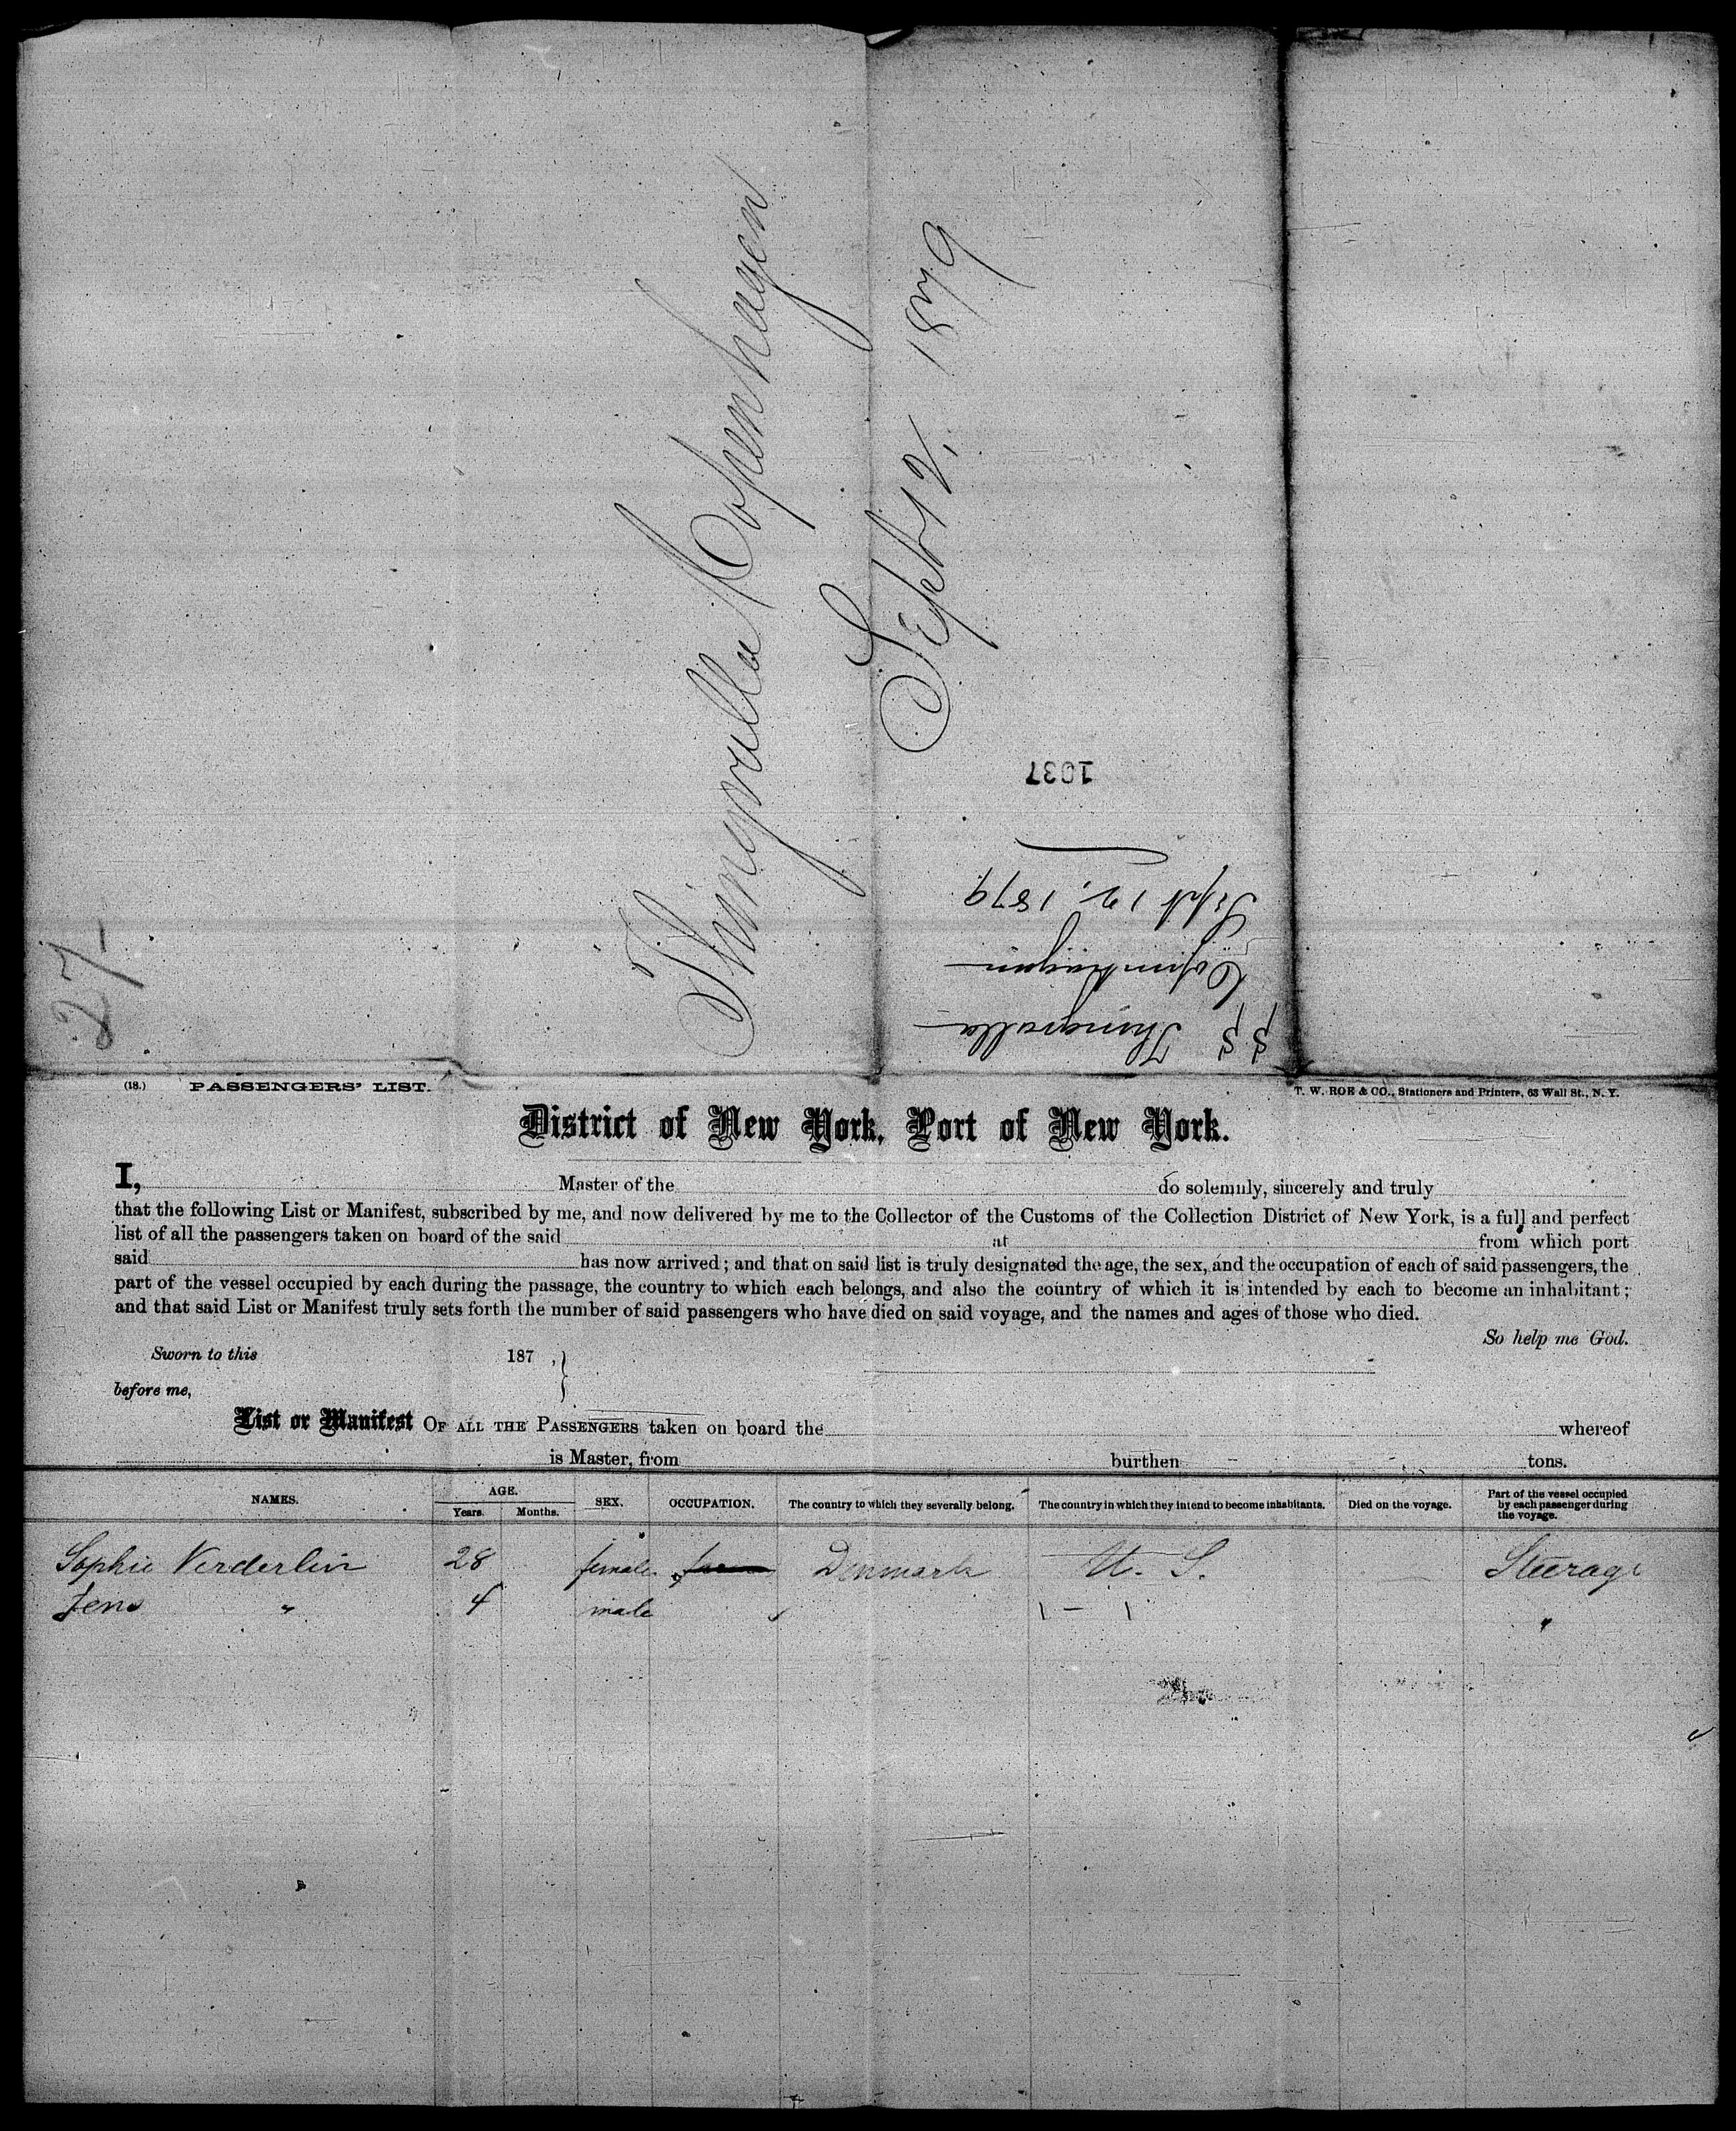 Thingvalla Copenhagen
Sept 12, 1879
1037
SS Thingvalla
Copenhagen
Sept 12, 1879
27-
(18.) PASSENGERS' LIST.
T. W. ROE & CO., Stationers and Printers, 63 Wall St., N. Y.
District of New York, Port of New York.
I, Master of the do solemnly, sincerely and truly
that the following List or Manifest, subscribed by me, and now delivered by me to the Collector of the Customs of the Collection District of New York, is a full and perfect
list of all the passengers taken on board of the said at from which port
said has now arrived; and that on said list is truly designated the age, the sex, and the occupation of each of said passengers, the
part of the vessel occupied by each during the passage, the country to which each belongs, and also the country of which it is intended by each to become an inhabitant;
and that said List or Manifest truly sets forth the number of said passengers who have died on said voyage, and the names and ages of those who died.
So help me God.
Sworn to this 187 ,
before me,
List or Manifest OF ALL THE PASSENGERS taken on board the whereof
is Master, from burthen tons.
NAMES. AGE. SEX. OCCUPATION. The country to which they severally belong. The country in which they intend to become inhabitants. Died on the voyage. Part of the vessel occupied by each passenger during the voyage.
Years. Months.
Sophie Verderlin 28 female Denmark U. S. Steerage
Jens " 4 male "